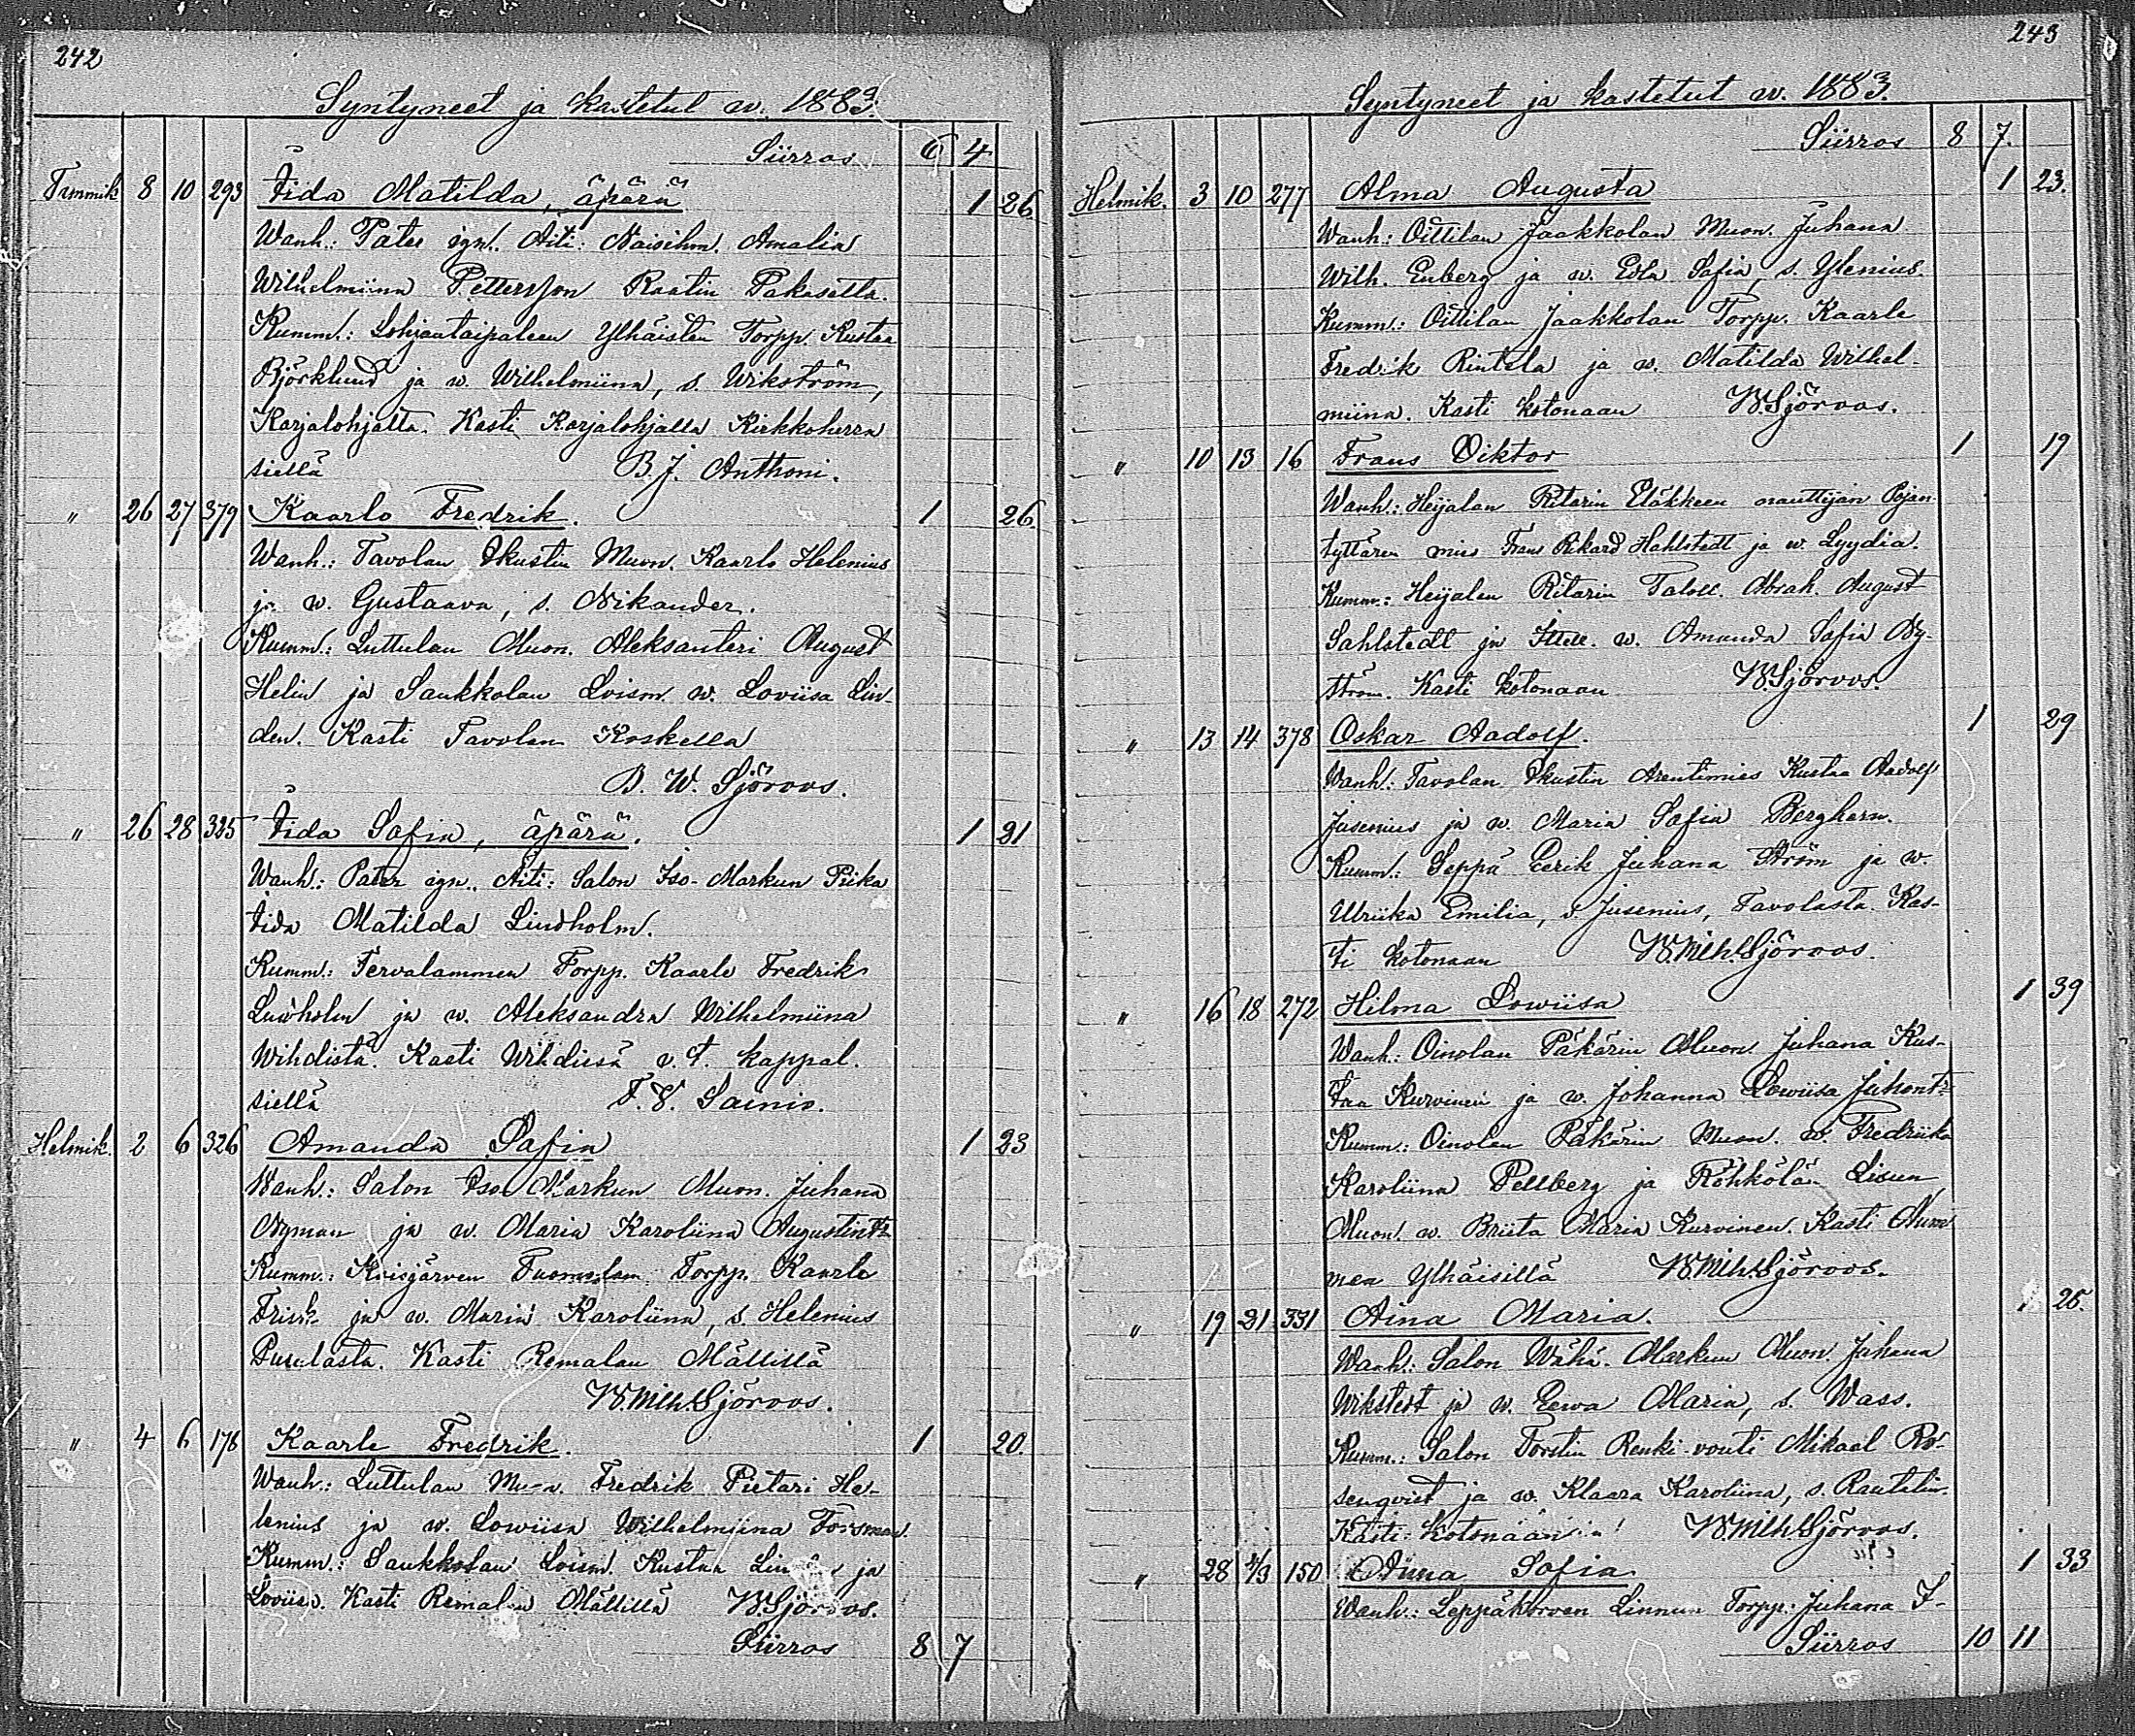 242
Syntyneet ja kastetut w. 1883.
Siirros 6 4
Tammik 8 10 293 Iida Matilda, äpärä 1 26
Wanh.: Pater ign. Äiti: Naisihm. Amalia
Wilhelmiina Pettersson Raatin Pakasetta.
Kumm.: Lohjantaipaleen Ylhäisten Torpp. Kustaa
Björklund ja w. Wilhelmiina, s. Wikström,
Karjalohjalta. Kasti Karjalohjalla Kirkkoherra
siellä B. J. Anthoni.
" 26 27 379 Kaarlo Fredrik. 1 26.
Wanh.: Tavolan Skustin Muon. Kaarlo Helenius
ja w. Gustaava, s. Nikander.
Kumm.: Luttulan Muon. Aleksanteri August
Helin ja Saukkolan Loism. w. Loviisa Lin-
den. Kasti Tavolan Koskella
B. W. Sjöroos.
" 26 28 325 Iida Safia, äpärä. 1 21
Wanh.: Pater ign. Äiti: Salon Iso-Markun Piika
Iida Matilda Lindholm.
Kumm.: Tervalammen Torpp. Kaarle Fredrik
Lindholm ja w. Aleksandra Wilhelmiina
Wihdistä. Kasti Wihdissä v. t. kappal.
siellä F. V. Sainio.
Helmik. 2 6 326 Amanda Safia 1 23
Wanh.: Salon Iso Markun Muon. Juhana
Nyman ja w. Maria Karoliina Augustint:
Kumm.: Koisjärven Tuomolan Torpp. Kaarle
Frisk ja w. Maria Karoliina, s. Helenius
Puulasta. Kasti Remalan Mällillä
W.Wilh.Sjöroos.
" 4 6 176 Kaarle Fredrik. 1 20.
Wanh.: Luttulan Muon. Fredrik Pietari He-
lenius ja w. Lowiisa Wilhelmiina Forsman.
Kumm.: Saukkolan Loism. Kustaa ja
Loviisa. Kasti Remalan Mällillä W.Sjöroos.
Siirros 8 7
243
Syntyneet ja kastetut w. 1883.
Siirros 8 7.
Helmik. 3 10 277 Alma Augusta 1 23.
Wanh.: Oittilan Jaakkolan Muon. Juhana
Wilh. Enberg ja w. Eva Safia, s. Ylenius.
Kumm.: Oittilan Jaakkolan Torpp. Kaarle
Fredrik Rintela ja w. Matilda Wilhel-
miina. Kasti kotonaan W.Sjöroos.
" 10 13 16 Frans Viktor 1 19
Wanh.: Heijalan Ritarin Eläkkeen nauttijan Pojan
tyttären mies Frans Rikard Hahlstedt ja w. Lyydia.
Kumm.: Heijalan Ritarin Taloll. Abrah. August
Sahlstedt ja Itsell. w. Amanda Safia Ny-
ström. Kasti kotonaan W.Sjöroos.
" 13 14 378 Oskar Aadolf. 1 29
Wanh.: Tavolan Skustin Arentimies Kustaa Aadolf
Jusenius ja w. Maria Safia Bergherm.
Kumm.: Seppä Eerik Juhana Ström ja w.
Ulriika Emilia, s. Jusenius, Tavolasta. Kas-
ti kotonaan W.Wilh.Sjöroos.
" 16 18 272 Hilma Lowiisa 1 39
Wanh.: Oinolan Päkärin Muon. Juhana Kus-
taa Kurvinen ja w. Johanna Lowiisa Juhont:
Kumm.: Oinolan Päkärin Muon. w. Fredriika
Karoliina Pellberg ja Röhkölän Lisun
Muon. w. Briita Maria Kurvinen. Kasti Num
men Ylhäisillä W.Wilh.Sjöroos.
" 19 21 331 Aina Maria. 1 25.
Wanh.: Salon Wähä-Markun Muon. Juhana
Wikstedt ja w. Eewa Maria, s. Wass.
Kumm.: Salon Torstin Renki-vouti Mikael Ro-
senqvist ja w. Klaara Karoliina, s. Rautelin.
Kasti: kotonaan W.Wilh.Sjöroos.
" 28 4/3 150 Aina Sofia 1 33
Wanh.: Leppäkorven Linnun Torpp. Juhana J-
Siirros 10 11